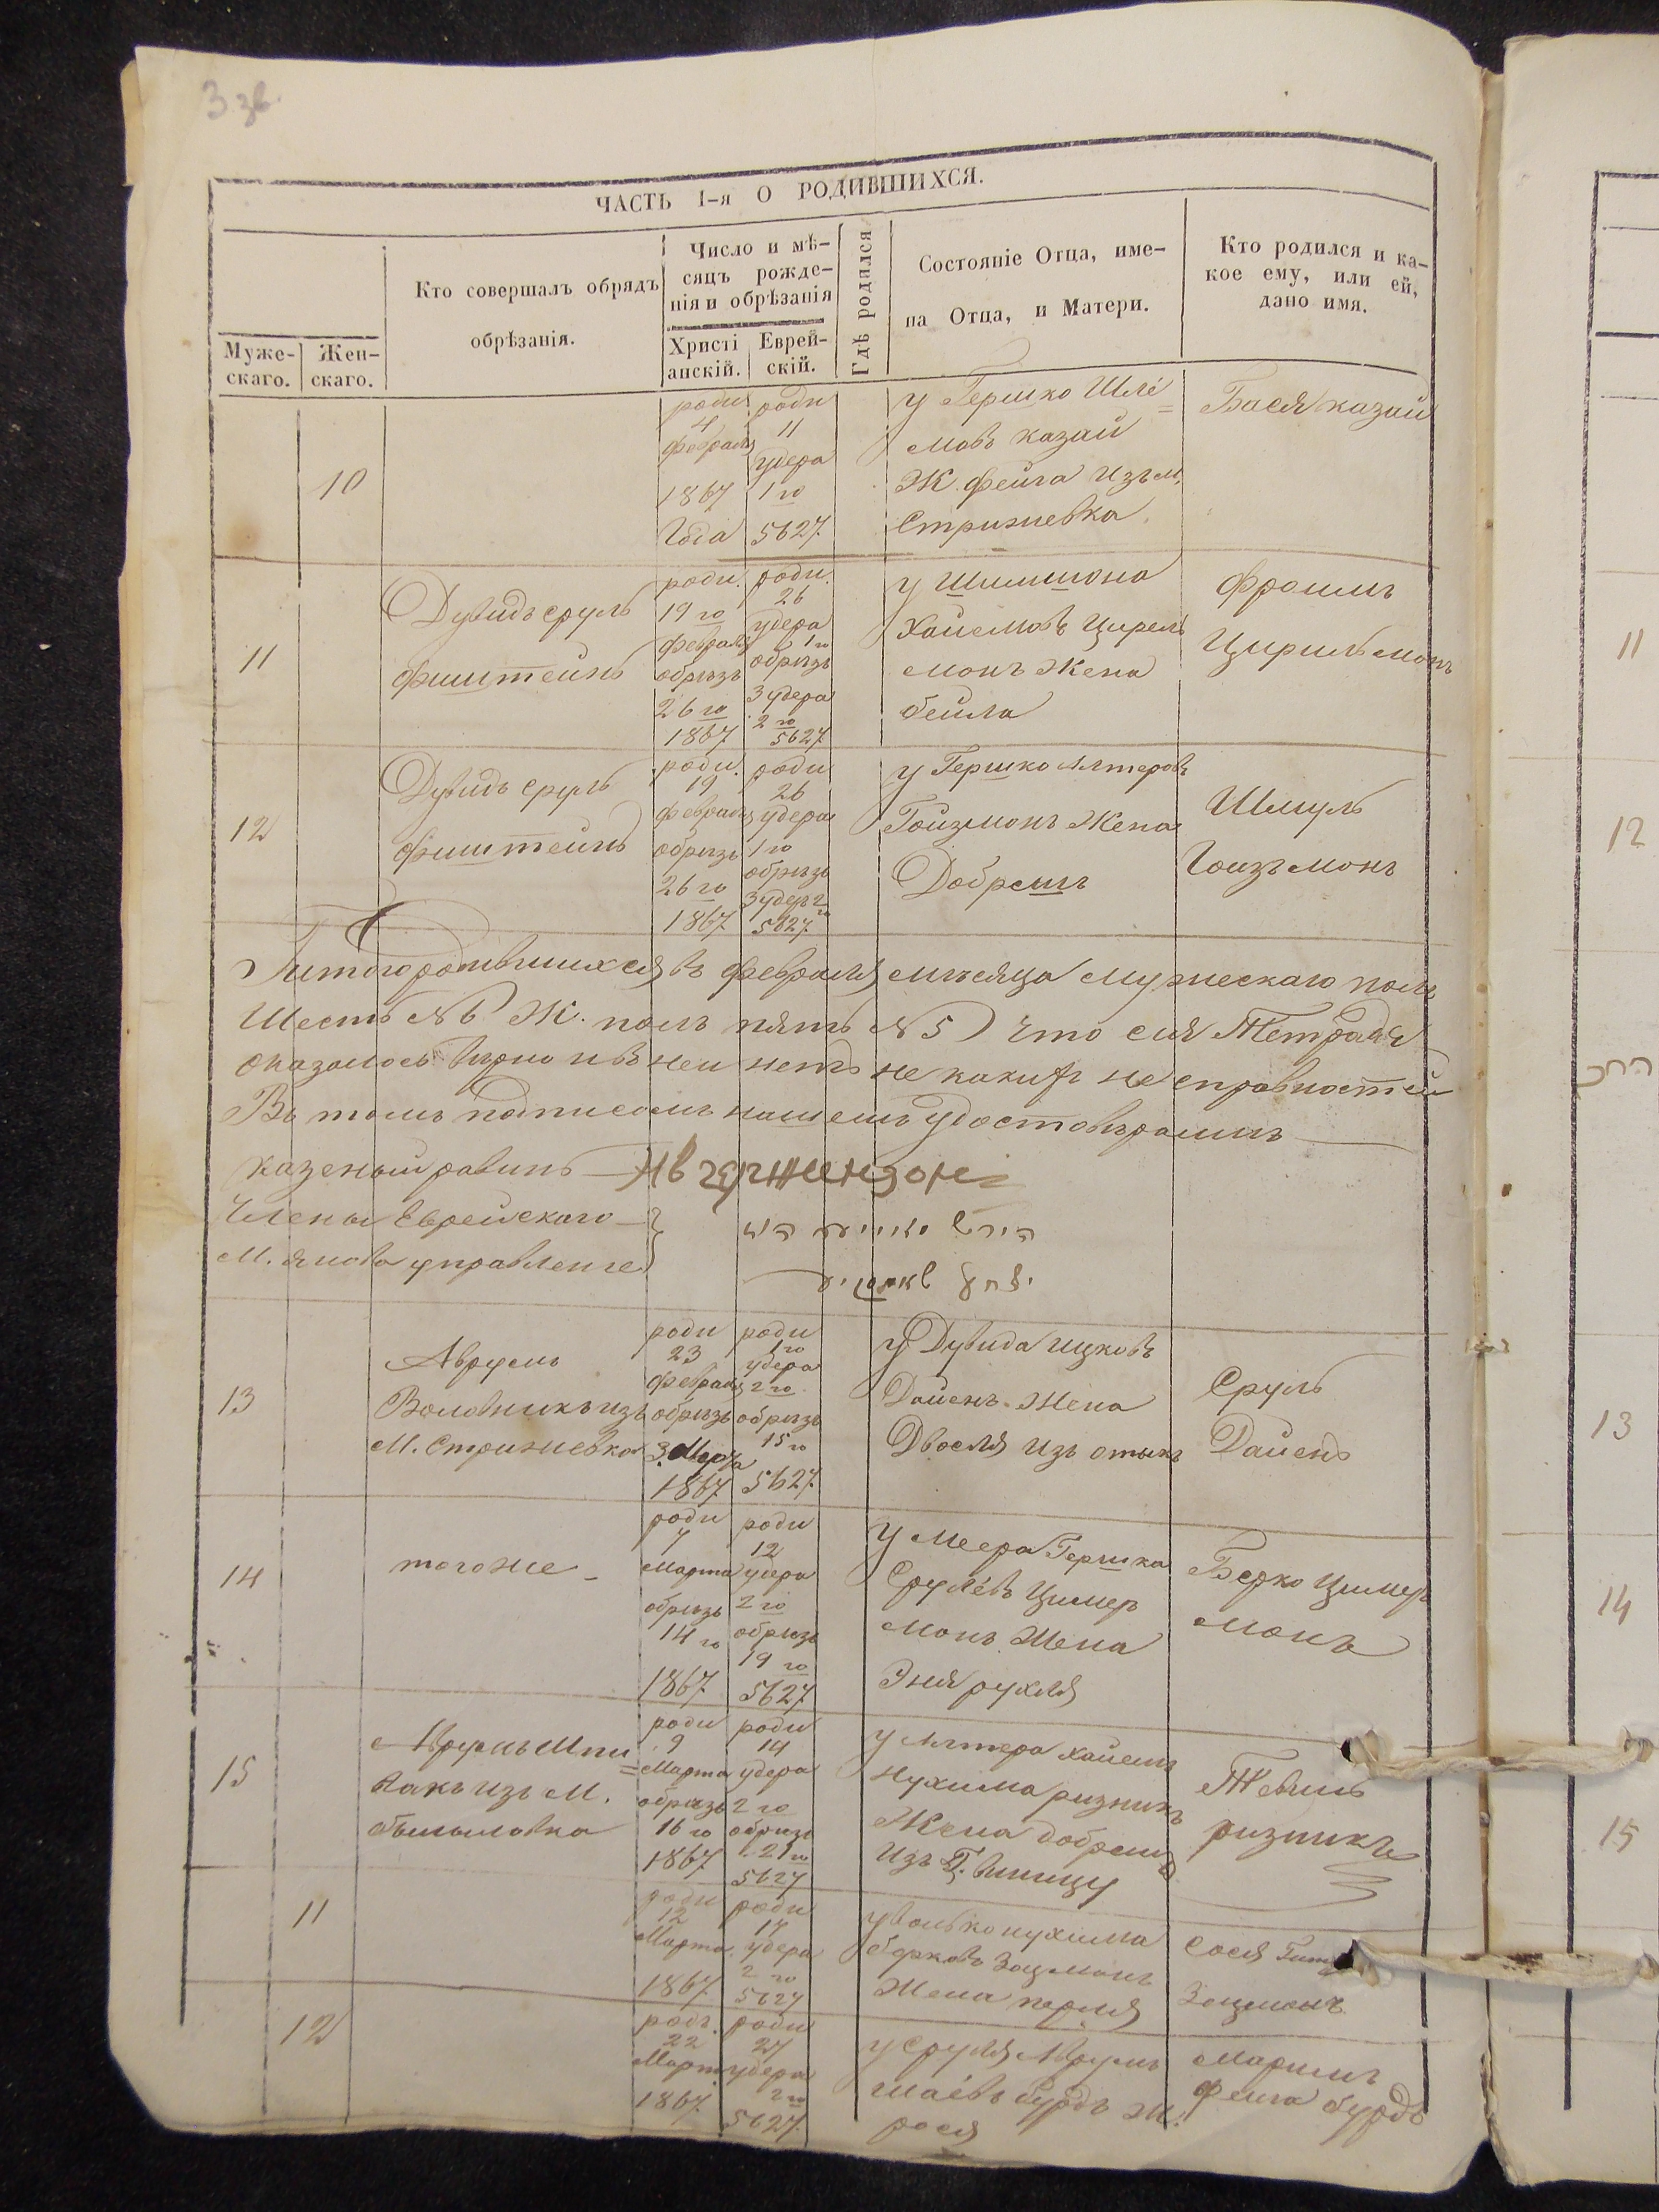 3 зв.
ЧАСТЬ 1-я О РОДИВШИХСЯ.
Муже-
скаго.
Жен-
скаго.
Кто совершалъ обрядъ
обрѣзанія.
Число и мѣ-
сяцъ рожде-
нія и обрѣзанія
Христі
анскій.
Еврей-
скій.
Гдѣ родился
Состояніе Отца, име-
на Отца, и Матери.
Кто родился и ка-
кое ему, или ей,
дано имя.
10
роди
4
февраля
1867
Года
роди
11
удера
1 го
5627.
у Гершко Шле=
мовъ казай
Ж. фейга изъ м,
Стрижевка.
Бася казай
11
Дувидъ сруль
фиштейнъ
роди.
19 го
февраля
обрѣзъ
26 го
1867.
роди.
26
удера
1 го
обрѣзъ
3 удера
2 го
5627.
у Шимшона
Хаиемовъ Цирель
монъ Жена
бейла
Фроимъ
Цирильмонъ
12
Дувидъ сруль
фиштейнъ
роди.
19
февраля
обрѣзъ
26 го
1867.
роди
26
удера
1 го
обрѣзъ
3 удера 2
го
5627.
у Гершко Алтеровъ
Гойзмонъ Жена
Добрешъ
Шмуль
Гоизъмонъ
родившихся въ февраля мѣсяца мужескаго полъ
Шесть №6 Ж. полъ пять №5) что сия Тетрадя
оказалось вѣрно и въ неи нетъ не какихъ не справностей
Въ томъ подписомъ нашемъ удостовѣраимъ
казеный равинъ
Члены Еврейскаго
М. Янова управление
13
Аврумъ
Воловникъ изъ
М. Стрижевка
роди
23
февраля
обрѣзъ
3. Марта
1867.
роди
1 го
удера
2 го.
обрѣзъ
15 го
5627.
у Дувида ицковъ
Дайенъ. Жена
Двося изъ
Сруль
Дайенъ
14
тогоже -
роди
7
Марта
обрѣзъ
14 го
1867.
роди
12
удера
2 го
обрѣзъ
19 го
5627.
у Меера Гершка
Срулевъ Цимер
монъ Жена
Эня рухля
Берко Цимеръ
монъ
15
Аврумъ Шпи=
вакъ изъ М.
роди
9
Марта
обрѣзъ
16 го
1867.
роди
14
удера
2 го
обрѣзъ
21 го
5627
у Алтера хаиемъ
Нухима ризникъ
Жена добрешъ
изъ Г. виницу
Тевель
ризникъ
11
роди
12
Марта.
1867.
роди
17
удера
2 го
5627
у волько нухима
берковъ Зацмонъ
Жена перля
Сося
Зацмонъ
12
роди.
22
Март
1867.
роди
27
удера
2 го
5627.
у Сруля Аврумъ
шаёвъ бурдъ Ж.
рося
Маримъ
фейга бурдъ
11
12
13
14
15